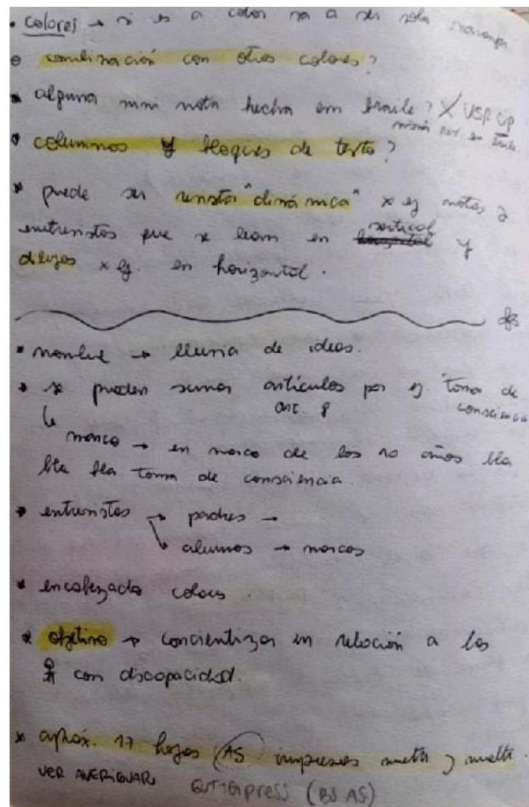 • colores → si es a color va a ser solo naranja
• combinación con otros colores?
* alguna mini nota hecha em braile? X
• columnas y bloques de texto?
* puede ser revista "dinámica" x ej notas y
entrevistas que se lean en vertical y
dibujos x ej. en horizontal.
* nombre → lluvia de ideas.
* se pueden sumar artículos por ej. toma de
art. 8 consciencia
↳ marco → en marco de los 10 años bla
bla bla toma de consciencia.
* entrevistas → padres →
↘ alumnos → marcos
* encabezado colores.
* objetivo → concientizar en relación a las
con discapacidad.
* aprox. 17 hojas (AS) impresas vuelta y vuelta.
VER AVERIGUAR GUTTENPRESS (BS AS)